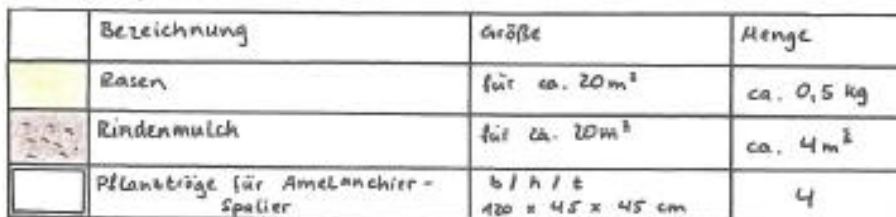 Bezeichnung Größe Menge
Rasen für ca. 20m² ca. 0,5 kg
Rindenmulch für ca. 20m² ca. 4m³
Pflanztröge für Amelanchier- b / h / t
Spalier 120 x 45 x 45 cm 4